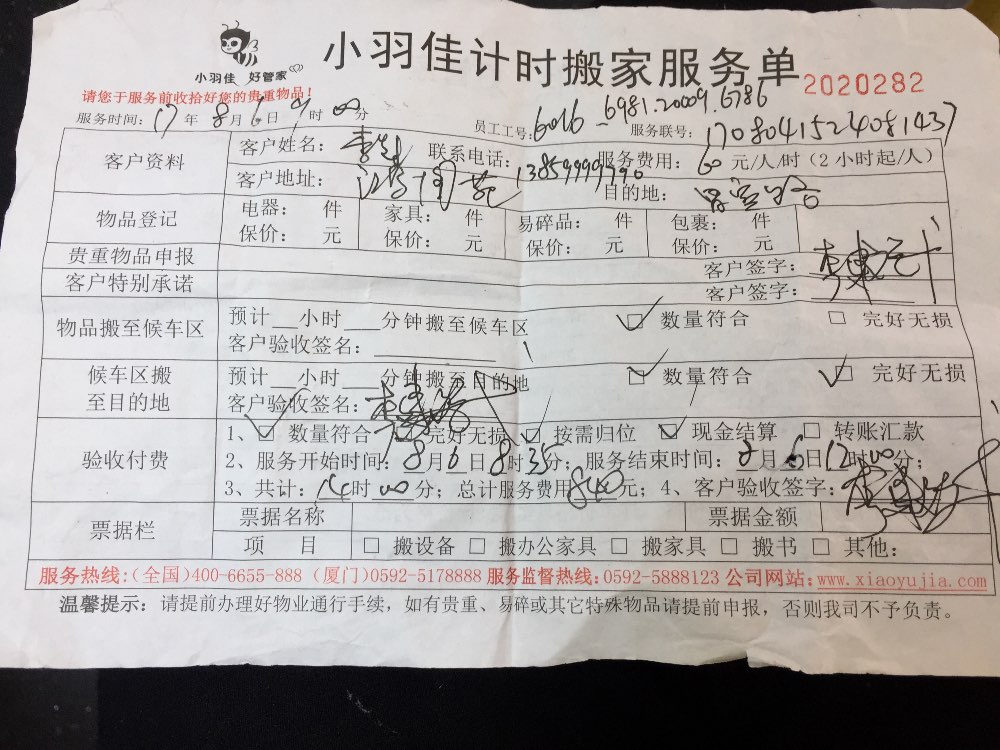 小羽佳 好管家
小羽佳计时搬家服务单 2020282
请您于服务前收拾好您的贵重物品！
服务时间：17年8月6日9时00分 员工工号：6016、6981.20009.6786 服务联号：170804152408143
客户资料 客户姓名：李 联系电话：13859999990 服务费用：60元/人/时（2小时起/人）
客户地址： 目的地：
物品登记 电器： 件 家具： 件 易碎品： 件 包裹： 件
保价： 元 保价： 元 保价： 元 保价： 元
贵重物品申报 客户签字：
客户特别承诺 客户签字：
物品搬至候车区 预计___小时___分钟搬至候车区 ☑ 数量符合 □ 完好无损
客户验收签名：
候车区搬至目的地 预计___小时___分钟搬至目的地 ☑ 数量符合 ☑ 完好无损
客户验收签名：
验收付费 1、☑ 数量符合 ☑ 完好无损 ☑ 按需归位 ☑ 现金结算 □ 转账汇款
2、服务开始时间：8月6日8时35分；服务结束时间：8月6日12时00分；
3、共计：14时00分；总计服务费用840元；4、客户验收签字：
票据栏 票据名称 票据金额
项 目 □ 搬设备 □ 搬办公家具 □ 搬家具 □ 搬书 □ 其他：
服务热线：(全国)400-6655-888 (厦门)0592-5178888 服务监督热线：0592-5888123 公司网站：www.xiaoyujia.com
温馨提示：请提前办理好物业通行手续，如有贵重、易碎或其它特殊物品请提前申报，否则我司不予负责。